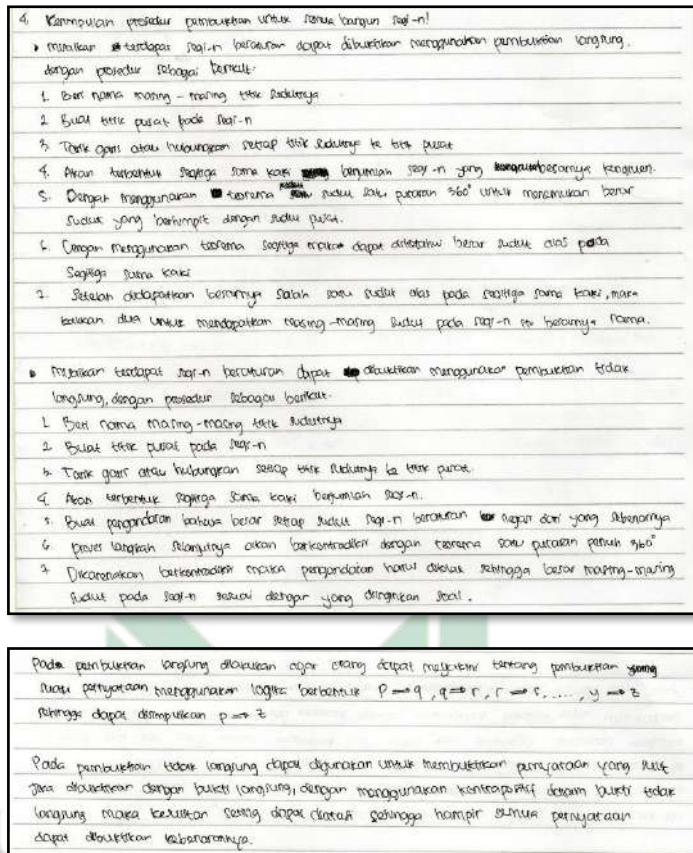 4. Kesimpulan prosedur pembuktian untuk semua bangun segi-n!
• misalkan terdapat segi-n beraturan dapat dibuktikan menggunakan pembuktian langsung.
dengan prosedur sebagai berikut.
1. Beri nama masing-masing titik sudutnya
2. Buat titik pusat pada segi-n
3. Tarik garis atau hubungkan setiap titik sudutnya ke titik pusat
4. Akan terbentuk segitiga sama kaki berjumlah segi-n yang besarnya kongruen.
5. Dengan menggunakan teorema sudut satu putaran 360° untuk menemukan besar
sudut yang berhimpit dengan sudut pusat.
6. Dengan menggunakan teorema segitiga maka dapat diketahui besar sudut alas pada
segitiga sama kaki
7. Setelah didapatkan besarnya salah satu sudut alas pada segitiga sama kaki, maka
kalikan dua untuk mendapatkan masing-masing sudut pada segi-n itu besarnya sama.
• misalkan terdapat segi-n beraturan dapat dibuktikan menggunakan pembuktian tidak
langsung, dengan prosedur sebagai berikut.
1. Beri nama masing-masing titik sudutnya
2. Buat titik pusat pada segi-n
3. Tarik garis atau hubungkan setiap titik sudutnya ke titik pusat.
4. Akan terbentuk segitiga sama kaki berjumlah segi-n.
5. Buat pengandaian bahwa besar setiap sudut segi-n beraturan negasi dari yang sebenarnya
6. proses langkah selanjutnya akan berkontradiksi dengan teorema satu putaran penuh 360°
7. Dikarenakan berkontradiksi maka pengandaian harus ditolak sehingga besar masing-masing
sudut pada segi-n sesuai dengan yang diinginkan soal.
Pada pembuktian langsung dilakukan agar orang dapat meyakini tentang pembuktian
suatu pernyataan menggunakan logika berbentuk p ⇒ q, q ⇒ r, r ⇒ s, ....., y ⇒ z
sehingga dapat disimpulkan p ⇒ z
Pada pembuktian tidak langsung dapat digunakan untuk membuktikan pernyataan yang sulit
jika dibuktikan dengan bukti langsung, dengan menggunakan kontrapositif dalam bukti tidak
langsung maka kesulitan sering dapat diatasi sehingga hampir semua pernyataan
dapat dibuktikan kebenarannya.